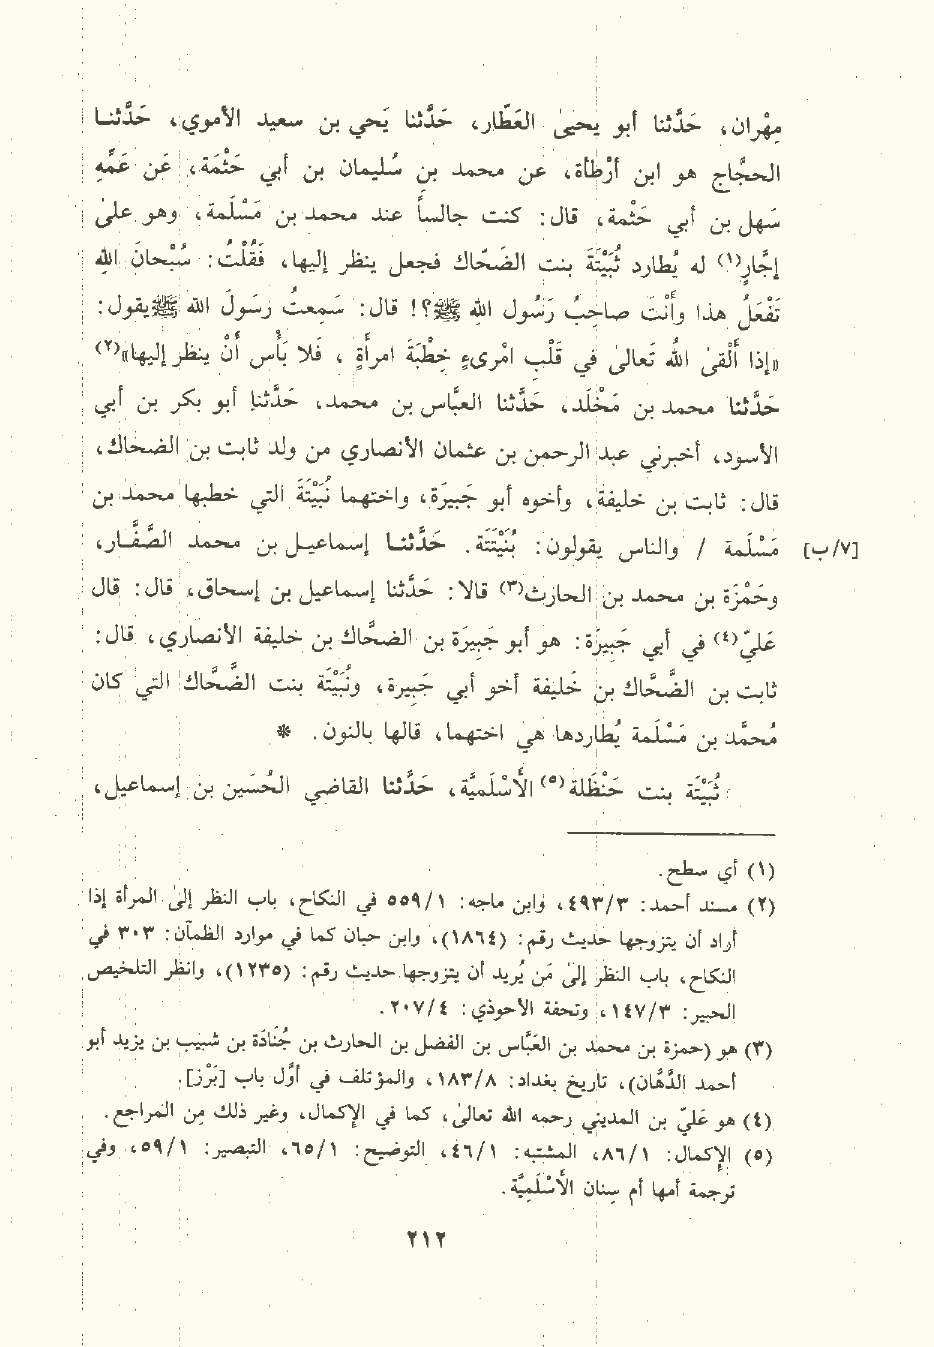 مِهْران، حَدَّثنا أبو يحيىٰ العَطّار، حَدَّثنا يَحي بن سعيد الأموي، حَدَّثنـا
الحجَّاج هو ابن أرْطأة، عن محمد بن سُليمان بن أبي حَثْمَة، عَن عَمِّه
سَهل بن أبي حَثْمة، قال: كنت جالساً عند محمد بن مَسْلَمة، وهو علىٰ
إجَّارٍ(١) له يُطارد ثُبَيْتَةَ بنت الضَحّاك فجعل ينظر إليها، فَقُلْتُ: سُبْحانَ الله
تَفْعَلُ هذا وأنْتَ صاحِبُ رَسُول اللهِ ﷺ؟! قال: سَمِعتُ رَسولَ الله ﷺيقول:
«إذا ألْقىٰ اللهُ تَعالىٰ في قَلْبِ امْرىءٍ خِطْبَةَ امرأةٍ ، فلا بَأسَ أنْ ينظر إليها»(٢)
حَدَّثنا محمد بن مَخْلَد، حَدَّثنا العبَّاس بن محمد، حَدَّثنا أبو بكر بن أبي
الأسود، أخبرني عبد الرحمن بن عثمان الأنصاري من ولد ثابت بن الضحاك،
قال: ثابت بن خليفة، وأخوه أبو جَبِيرَة، واختهما نُبَيْتَةَ التي خطبها محمد بن
[٧/ب] مَسْلَمة / والناس يقولون: بُنَيْتَتَة. حَدَّثنـا إسماعيـل بن محمد الصَّفَّـار،
وحَمْزَة بن محمد بن الحارث(٣) قالا: حَدَّثنا إسماعيل بن إسحاق، قال: قال
عَليّ(٤) في أبي جَبِيرَة: هو أبو جَبِيرَة بن الضحَّاك بن خليفة الأنصاري، قال:
ثابت بن الضَحَّاك بن خَليفة أخو أبي جَبِيرة، ونُبَيْتَة بنت الضَحَّاك التي كان
مُحمَّد بن مَسْلَمة يُطاردها هي اختهما، قالها بالنون. *
ثُبَيْتَة بنت حَنْظَلة(٥) الأَسْلَميَّة، حَدَّثنا القاضي الحُسَين بن إسماعيل،
(١) أي سطح.
(٢) مسند أحمد: ٤٩٣/٣، وابن ماجه: ٥٥٩/١ في النكاح، باب النظر إلىٰ المرأة إذا
أراد أن يتزوجها حديث رقم: (١٨٦٤)، وابن حبان كما في موارد الظمآن: ٣٠٣ في
النكاح، باب النظر إلىٰ مَن يُريد أن يتزوجها حديث رقم: (١٢٣٥)، وانظر التلخيص
الحبير: ١٤٧/٣، وتحفة الأحوذي: ٢٠٧/٤.
(٣) هو (حمزة بن محمد بن العَبَّاس بن الفضل بن الحارث بن جُنَادَة بن شبيب بن يزيد أبو
أحمد الدَّهَّان)، تاريخ بغداد: ١٨٣/٨، والمؤتلف في أوَّل باب [بَرْز].
(٤) هو عَليّ بن المديني رحمه الله تعالىٰ، كما في الإكمال، وغير ذلك مِن المراجع.
(٥) الإكمال: ٨٦/١، المشتبه: ٤٦/١، التوضيح: ٦٥/١، التبصير: ٥٩/١، وفي
ترجمة أمها أم سِنان الأَسْلَمِيَّة.
٢١٢